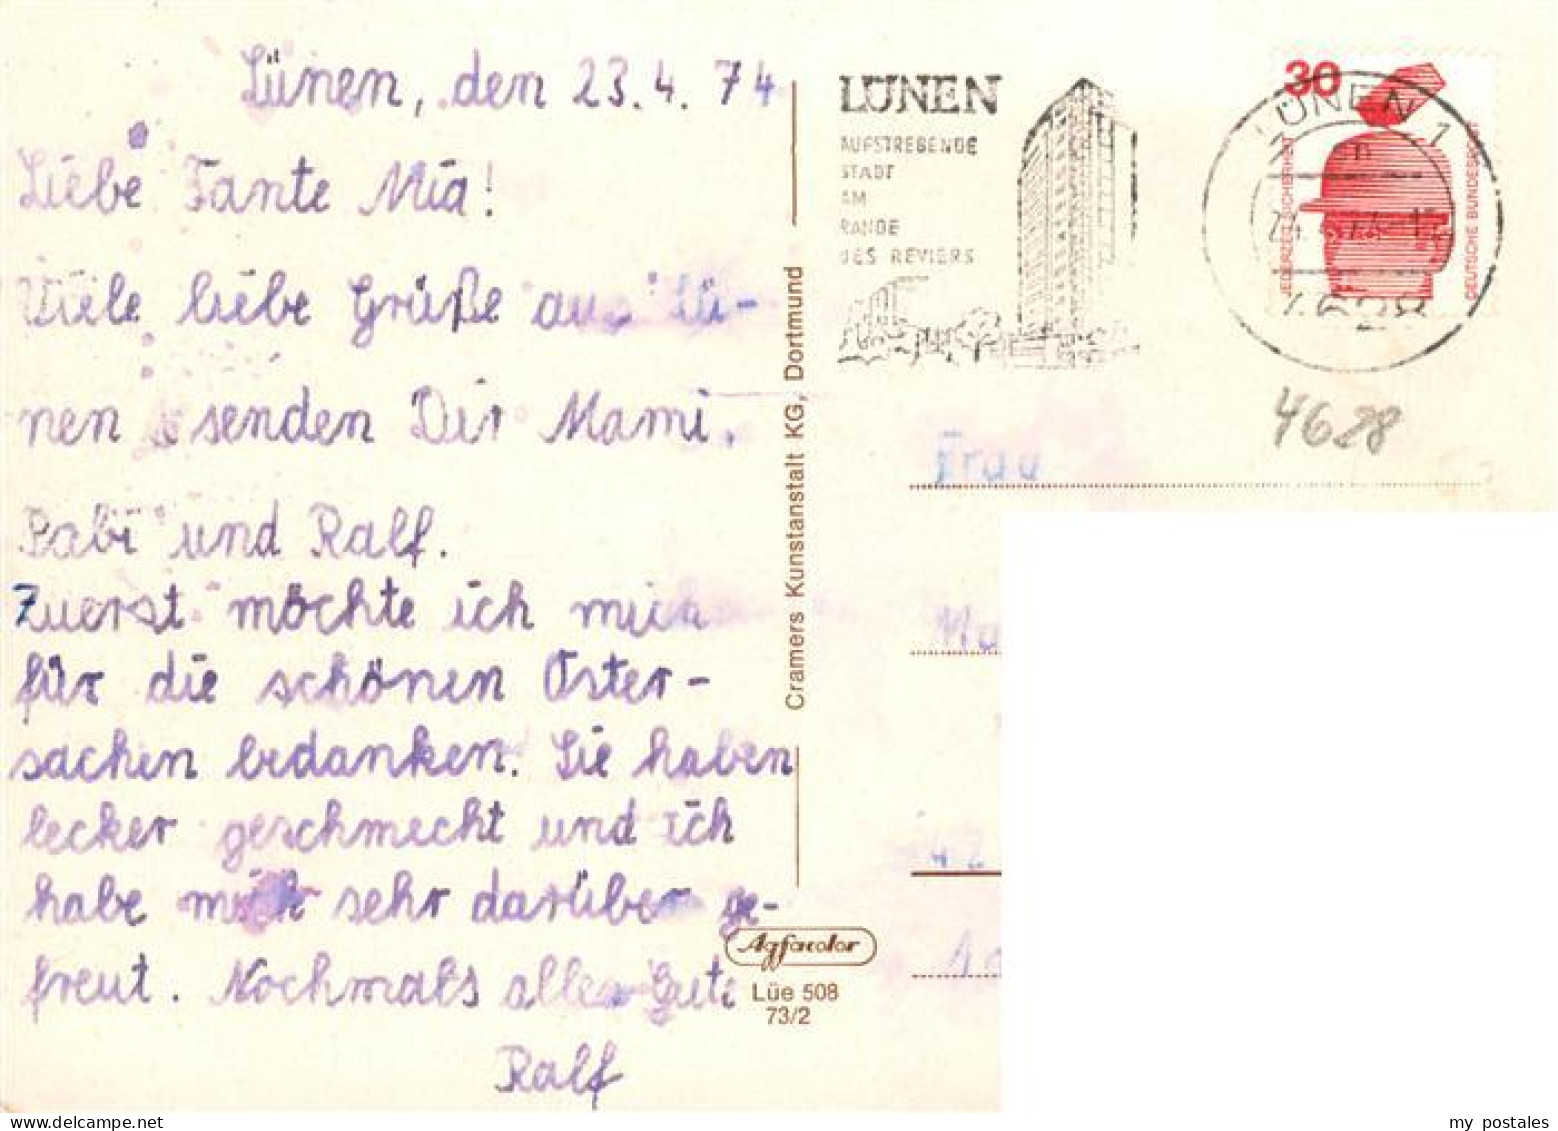 Lünen, den 23.4.74
Liebe Tante Mia!
Viele liebe Grüße aus Lü-
nen senden Dir Mami,
Pabi und Ralf.
Zuerst möchte ich mich
für die schönen Oster-
sachen bedanken. Sie haben
lecker geschmeckt und ich
habe mich sehr darüber ge-
freut. Nochmals alles Gute
Ralf
Cramers Kunstanstalt KG, Dortmund
Agfacolor
Lüe 508
73/2
LÜNEN
AUFSTREBENDE
STADT
AM
RANDE
DES REVIERS
30
JEDERZEIT SICHERHEIT
DEUTSCHE BUNDESPOST
LÜNEN 1
4628
Frau
42
my postales